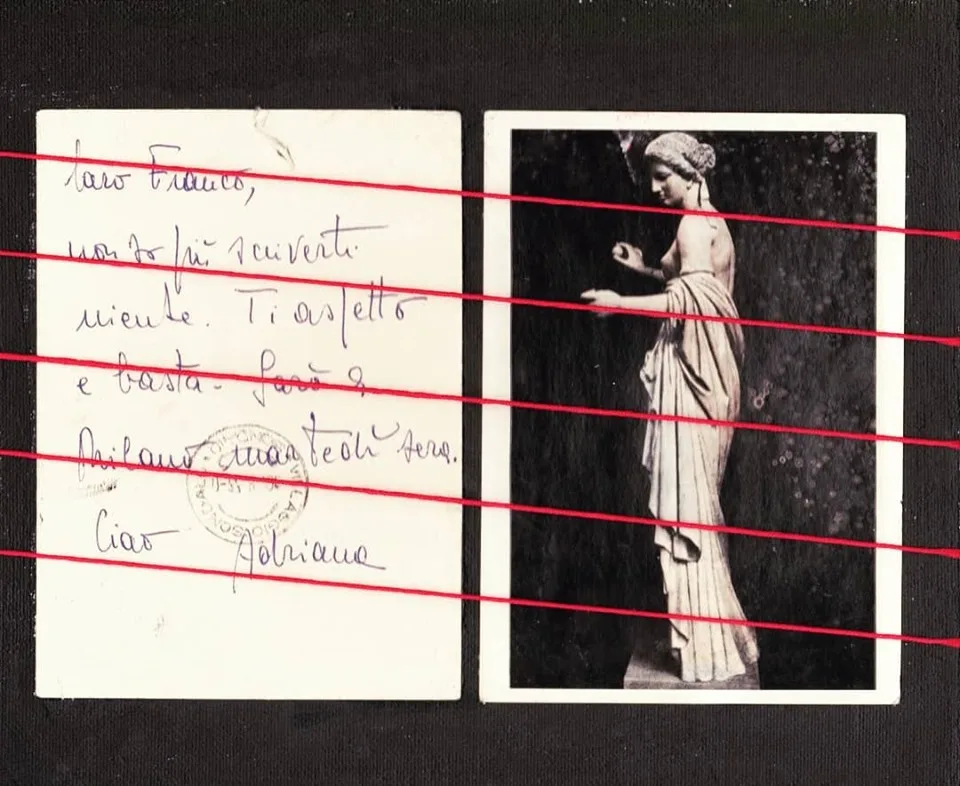 Caro Franco,
non so più scriverti
niente. Ti aspetto
e basta. Sarò a
Milano martedì sera.
Ciao Adriana